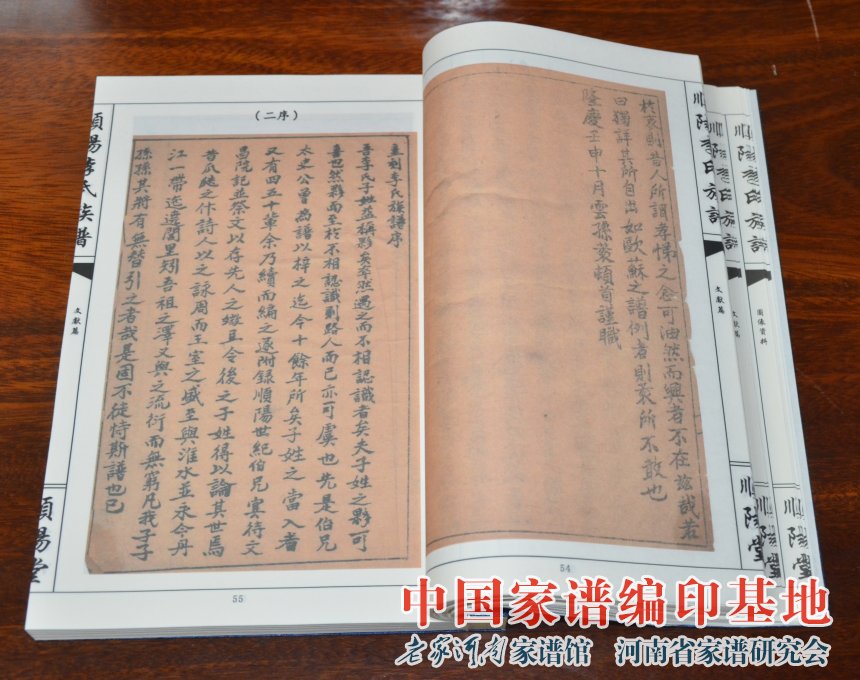 於蓑則昔人所謂孝悌之念可油然而興者不在玆哉若
曰獨詳其所自出如歐蘇之譜例者則蓑所不敢也
隆慶壬申十月雲孫蓑頓首謹職
順陽李氏族譜
文獻篇
順陽堂
54
文獻篇
圖像資料
(二序)
重刻李氏族譜序
吾李氏子姓益稱夥矣卒然遇之而不相認識者矣夫子姓之夥可
喜也然夥而至於不相認識則路人而已亦可虞也先是伯兄
太史公曾為譜以梓之迄今十餘年所矣子姓之當入者
又有四五十輩余乃續而編之逐附錄順陽世紀伯兄寞待文
昌院記並祭文以存先人之蹟且令後之子姓得以論其世焉
昔瓜瓞之什詩人以之詠周而王室之盛至與淮水並永今丹
江一帶迄遶閭里矧吾祖之澤又與之流衍而無窮凡我子子
孫孫其將有無替引之者哉是固不徒恃斯譜也已
順陽李氏族譜
文獻篇
順陽堂
55
中国家谱编印基地
老家河南家谱馆 河南省家谱研究会